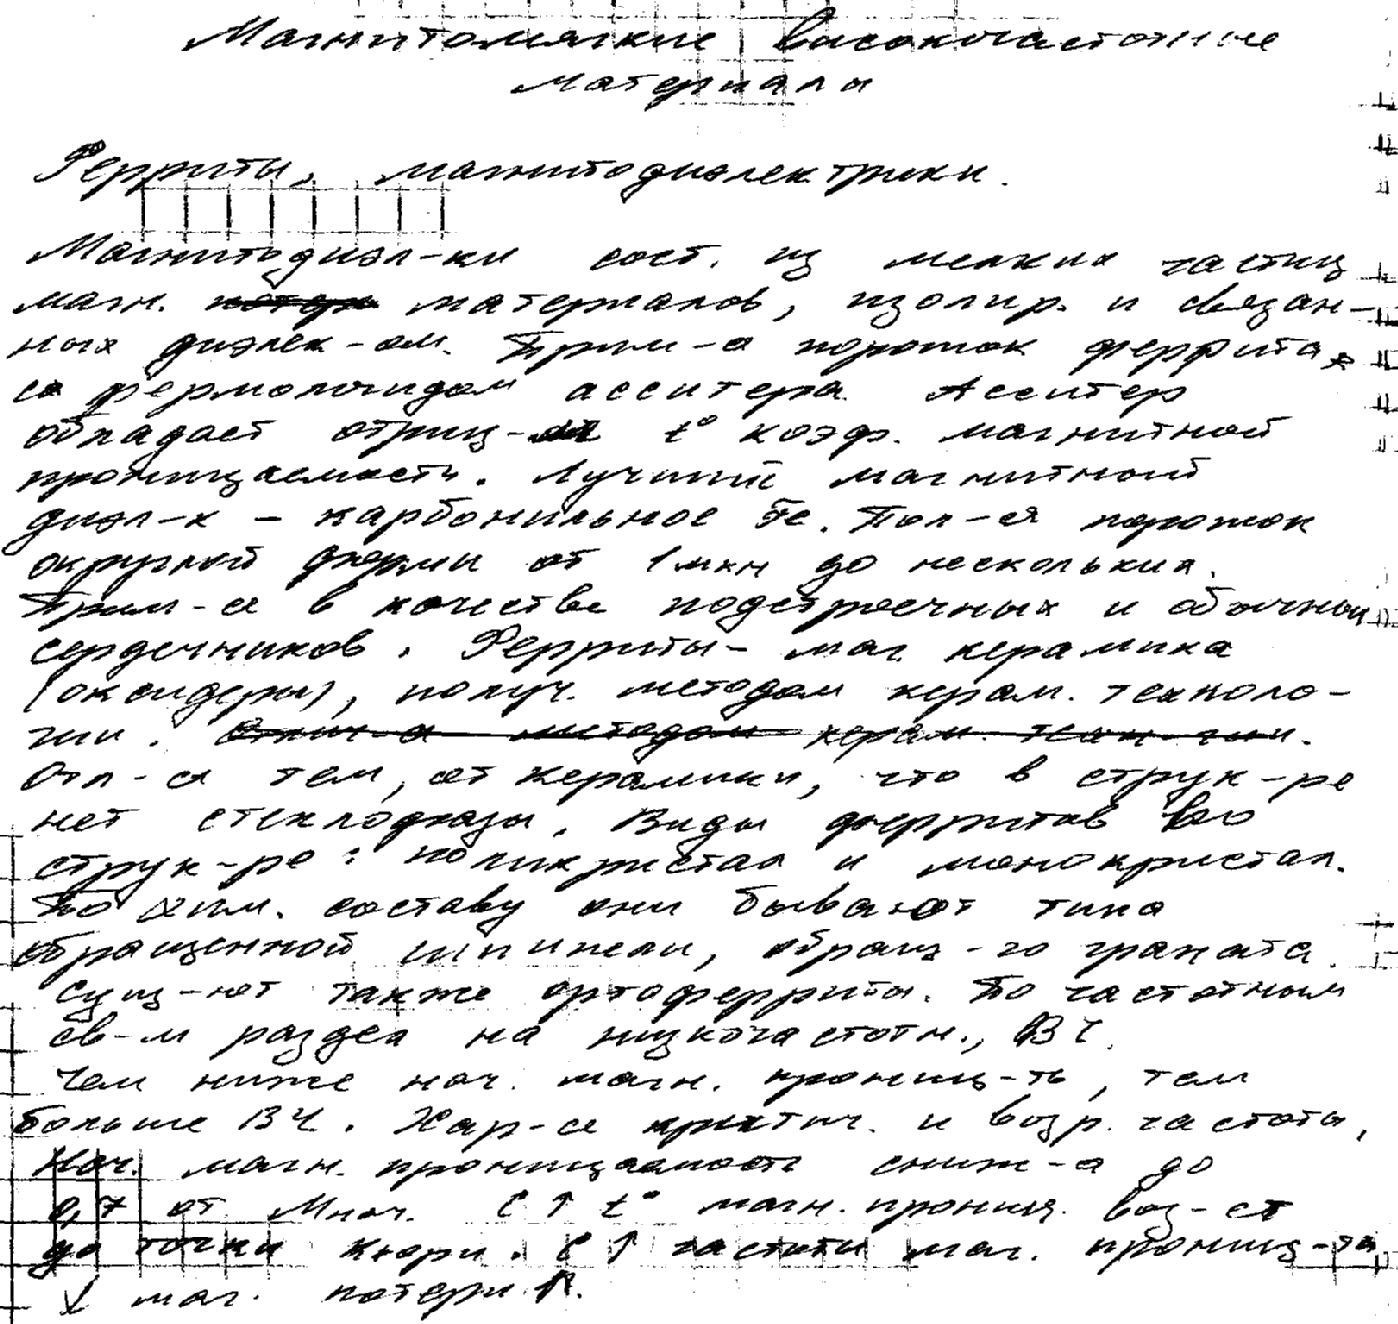 Магнитомягкие высокочастотные
материалы
Ферриты, магнитодиэлектрики.
Магнитодиэл-ки сост. из мелких частиц
магн. материалов, изолир. и связан-
ных диэлек-ом. Прим-а порошок феррита,
со фермолоидом асситера. Асситер
обладает отриц- t° коэф. магнитной
проницаемости. Лучший магнитный
диэл-к - карбонильное Fe. Пол-ся порошок
округлой формы от 1 мкн до нескольких.
Прим-ся в качестве подстроечных и обычных
сердечников. Ферриты- маг. керамика
(оксидеры), получ. методом керам. техноло-
гии.
Отл-ся тем, от керамики, что в струк-ре
нет стеклофазы. Виды ферритов по
струк-ре: поликристал и монокристал.
По хим. составу они бывают типа
обращенной шпинели, обращ-го граната.
Сущ-ют также ортоферриты. По частотным
св-м раздел на низкочастотн., ВЧ.
Чем ниже нач. магн. прониц-ть, тем
больше ВЧ. Хар-ся критич. и возр. частоты,
Нач. магн. проницаемость сниж-а до
0,7 от Мнач. С ↑ t° магн. прониц. воз-ет
до точки Кюри. С ↑ частоты маг. прониц-ть
↓ маг. потери ↑.